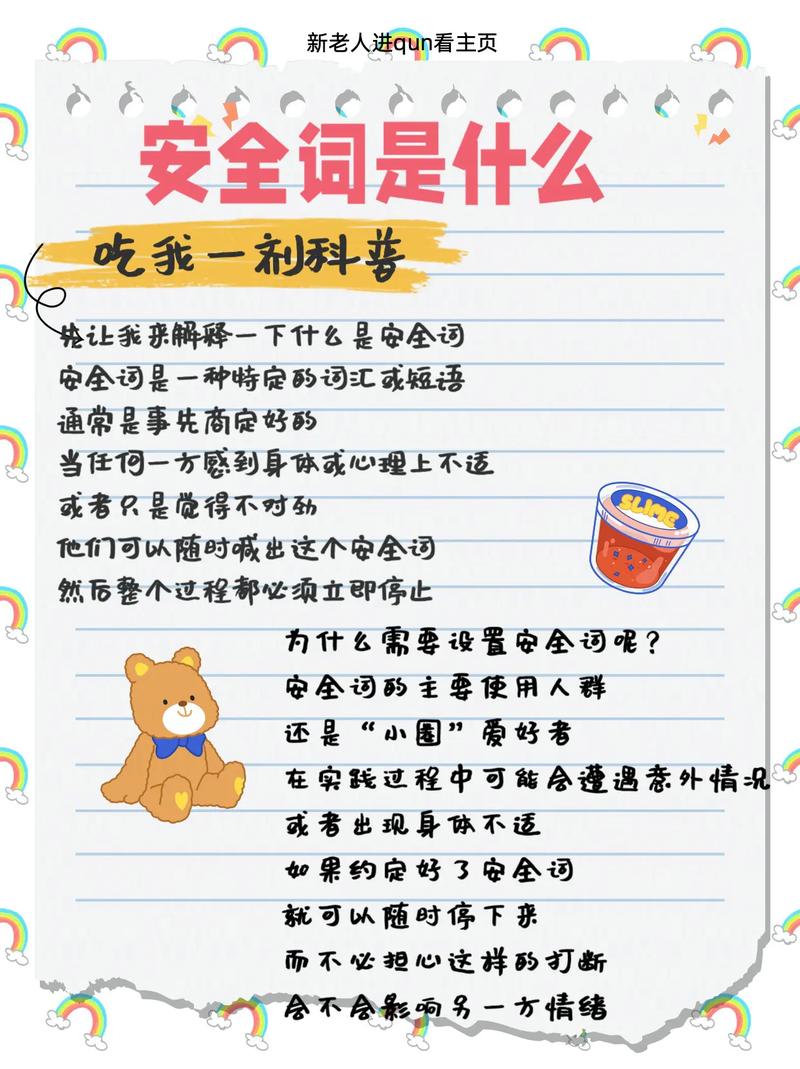 新老人进qun看主页
安全词是什么
吃我一剂科普
先让我来解释一下什么是安全词
安全词是一种特定的词汇或短语
通常是事先商定好的
当任何一方感到身体或心理上不适
或者只是觉得不对劲
他们可以随时喊出这个安全词
然后整个过程都必须立即停止
SLIME
为什么需要设置安全词呢？
安全词的主要使用人群
还是“小圈”爱好者
在实践过程中可能会遭遇意外情况
或者出现身体不适
如果约定好了安全词
就可以随时停下来
而不必担心这样的打断
会不会影响另一方情绪